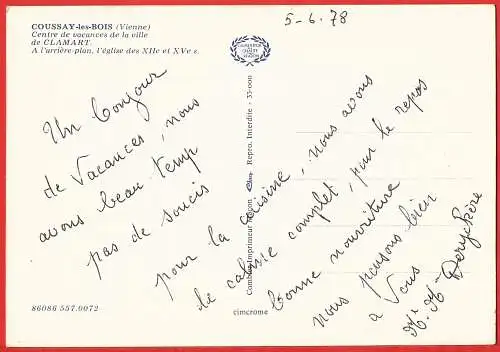 COUSSAY-les-BOIS (Vienne)
Centre de vacances de la ville
de CLAMART.
A l'arrière-plan, l'église des XIIe et XVe s.
5-6.78
Un bonjour
de Vacances, nous
avons beau temp
pas de soucis
pour la cuisine, nous avons
le calme complet, pour le repos
bonne nourriture
nous pensons bien
a Vous
Combier Imprimeur Mâcon Repro. Interdite - 35-000
cimcrome
86086 557.0072